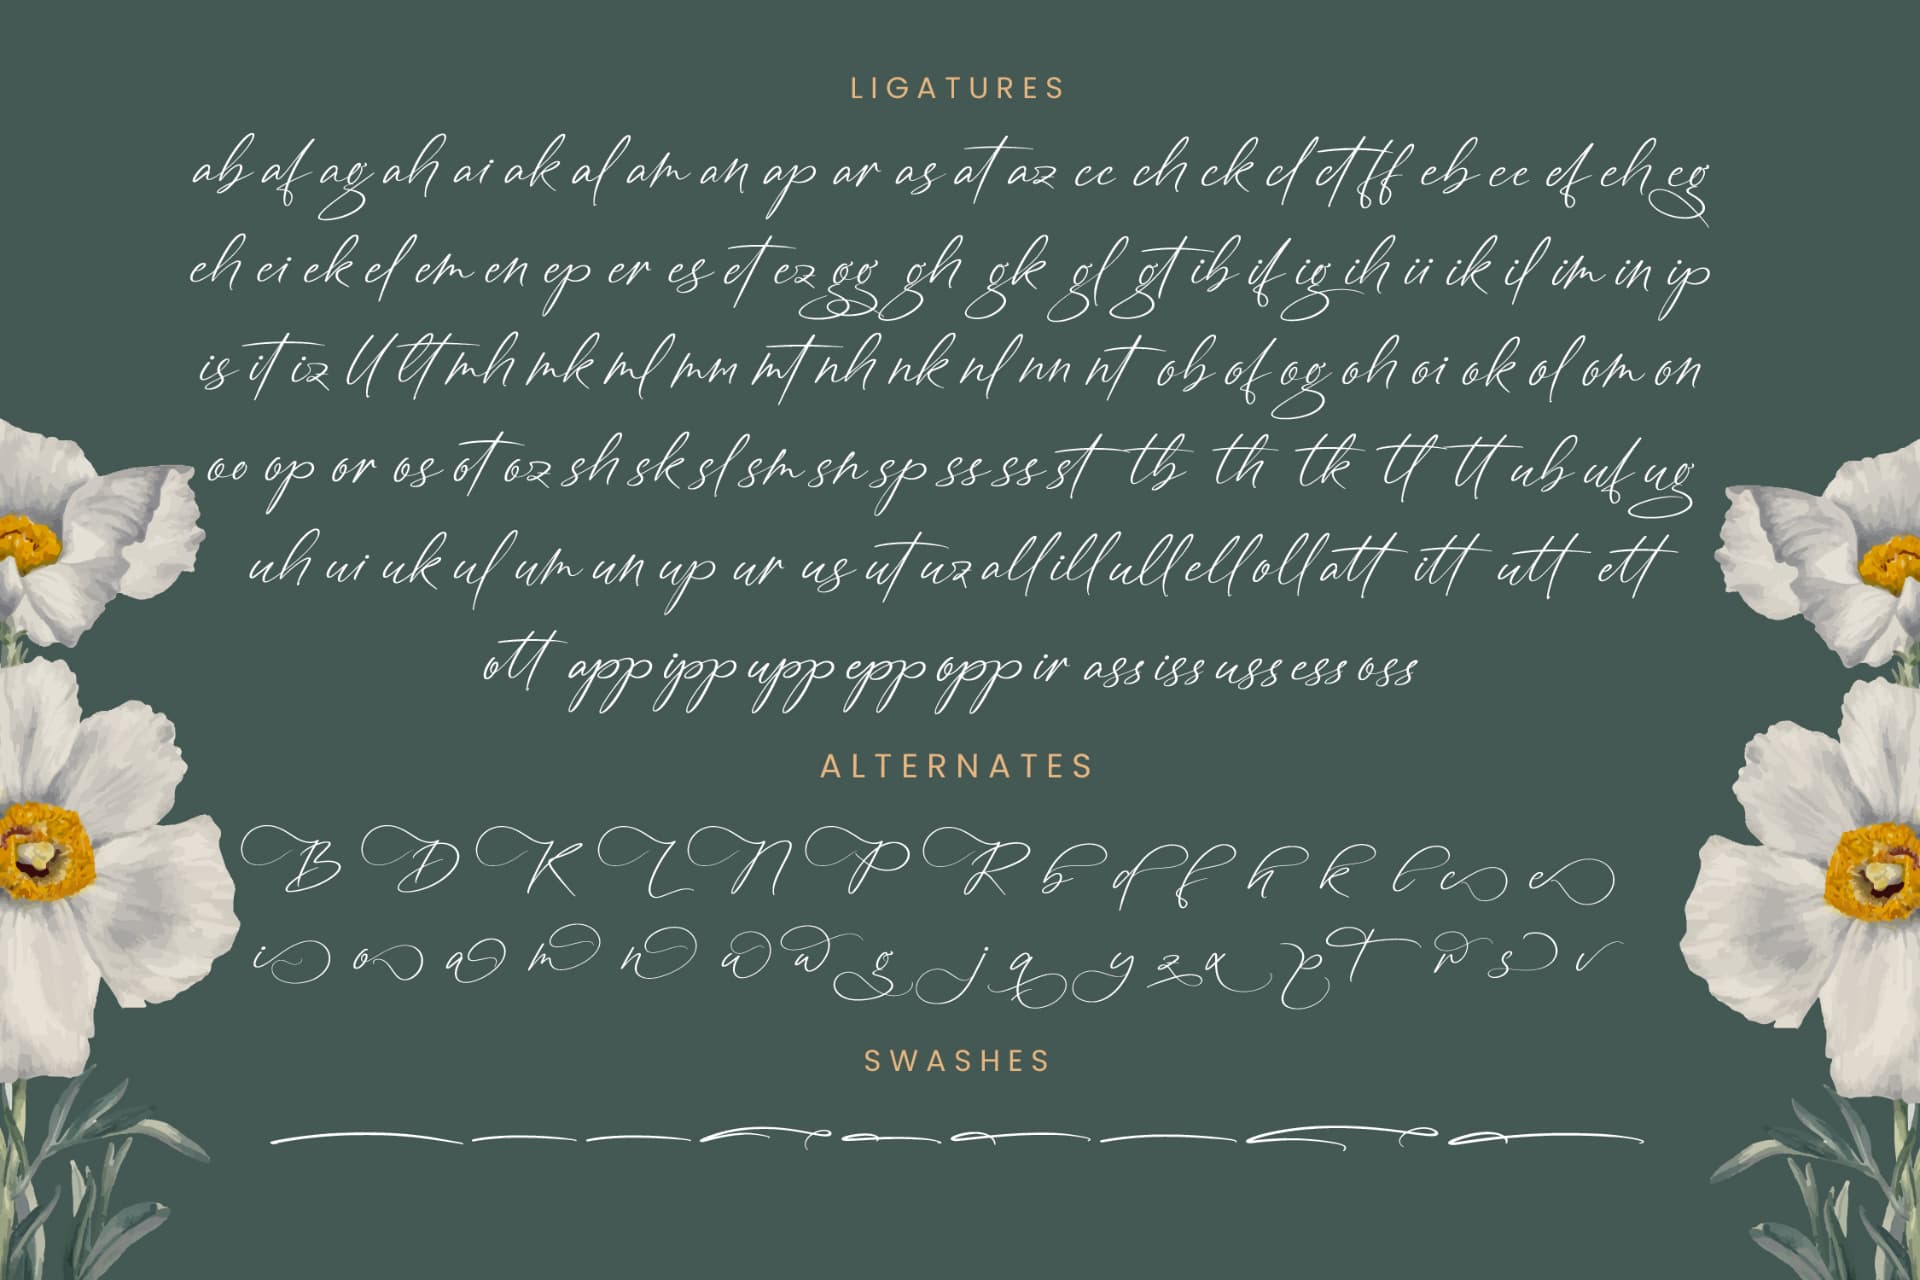 LIGATURES
ab af ag ah ai ak al am an ap ar as at az cc ch ck cl ct ff eb ee ef eh eg
eh ei ek el em en ep er es et ez gg gh gk gl gt ib if ig ih ii ik il im in ip
is it iz ll lt mh mk ml mm mt nh nk nl nn nt ob of og oh oi ok ol om on
oo op or os ot oz sh sk sl sm sn sp ss ss st tb th tk tl tt ub uf ug
uh ui uk ul um un up ur us ut uz all ill ull ell oll att itt utt ett
ott app ipp upp epp opp ir ass iss uss ess oss
ALTERNATES
B D K L N P R b d f h k l c e
i o a m n u w g j q y z x p t r s v
SWASHES